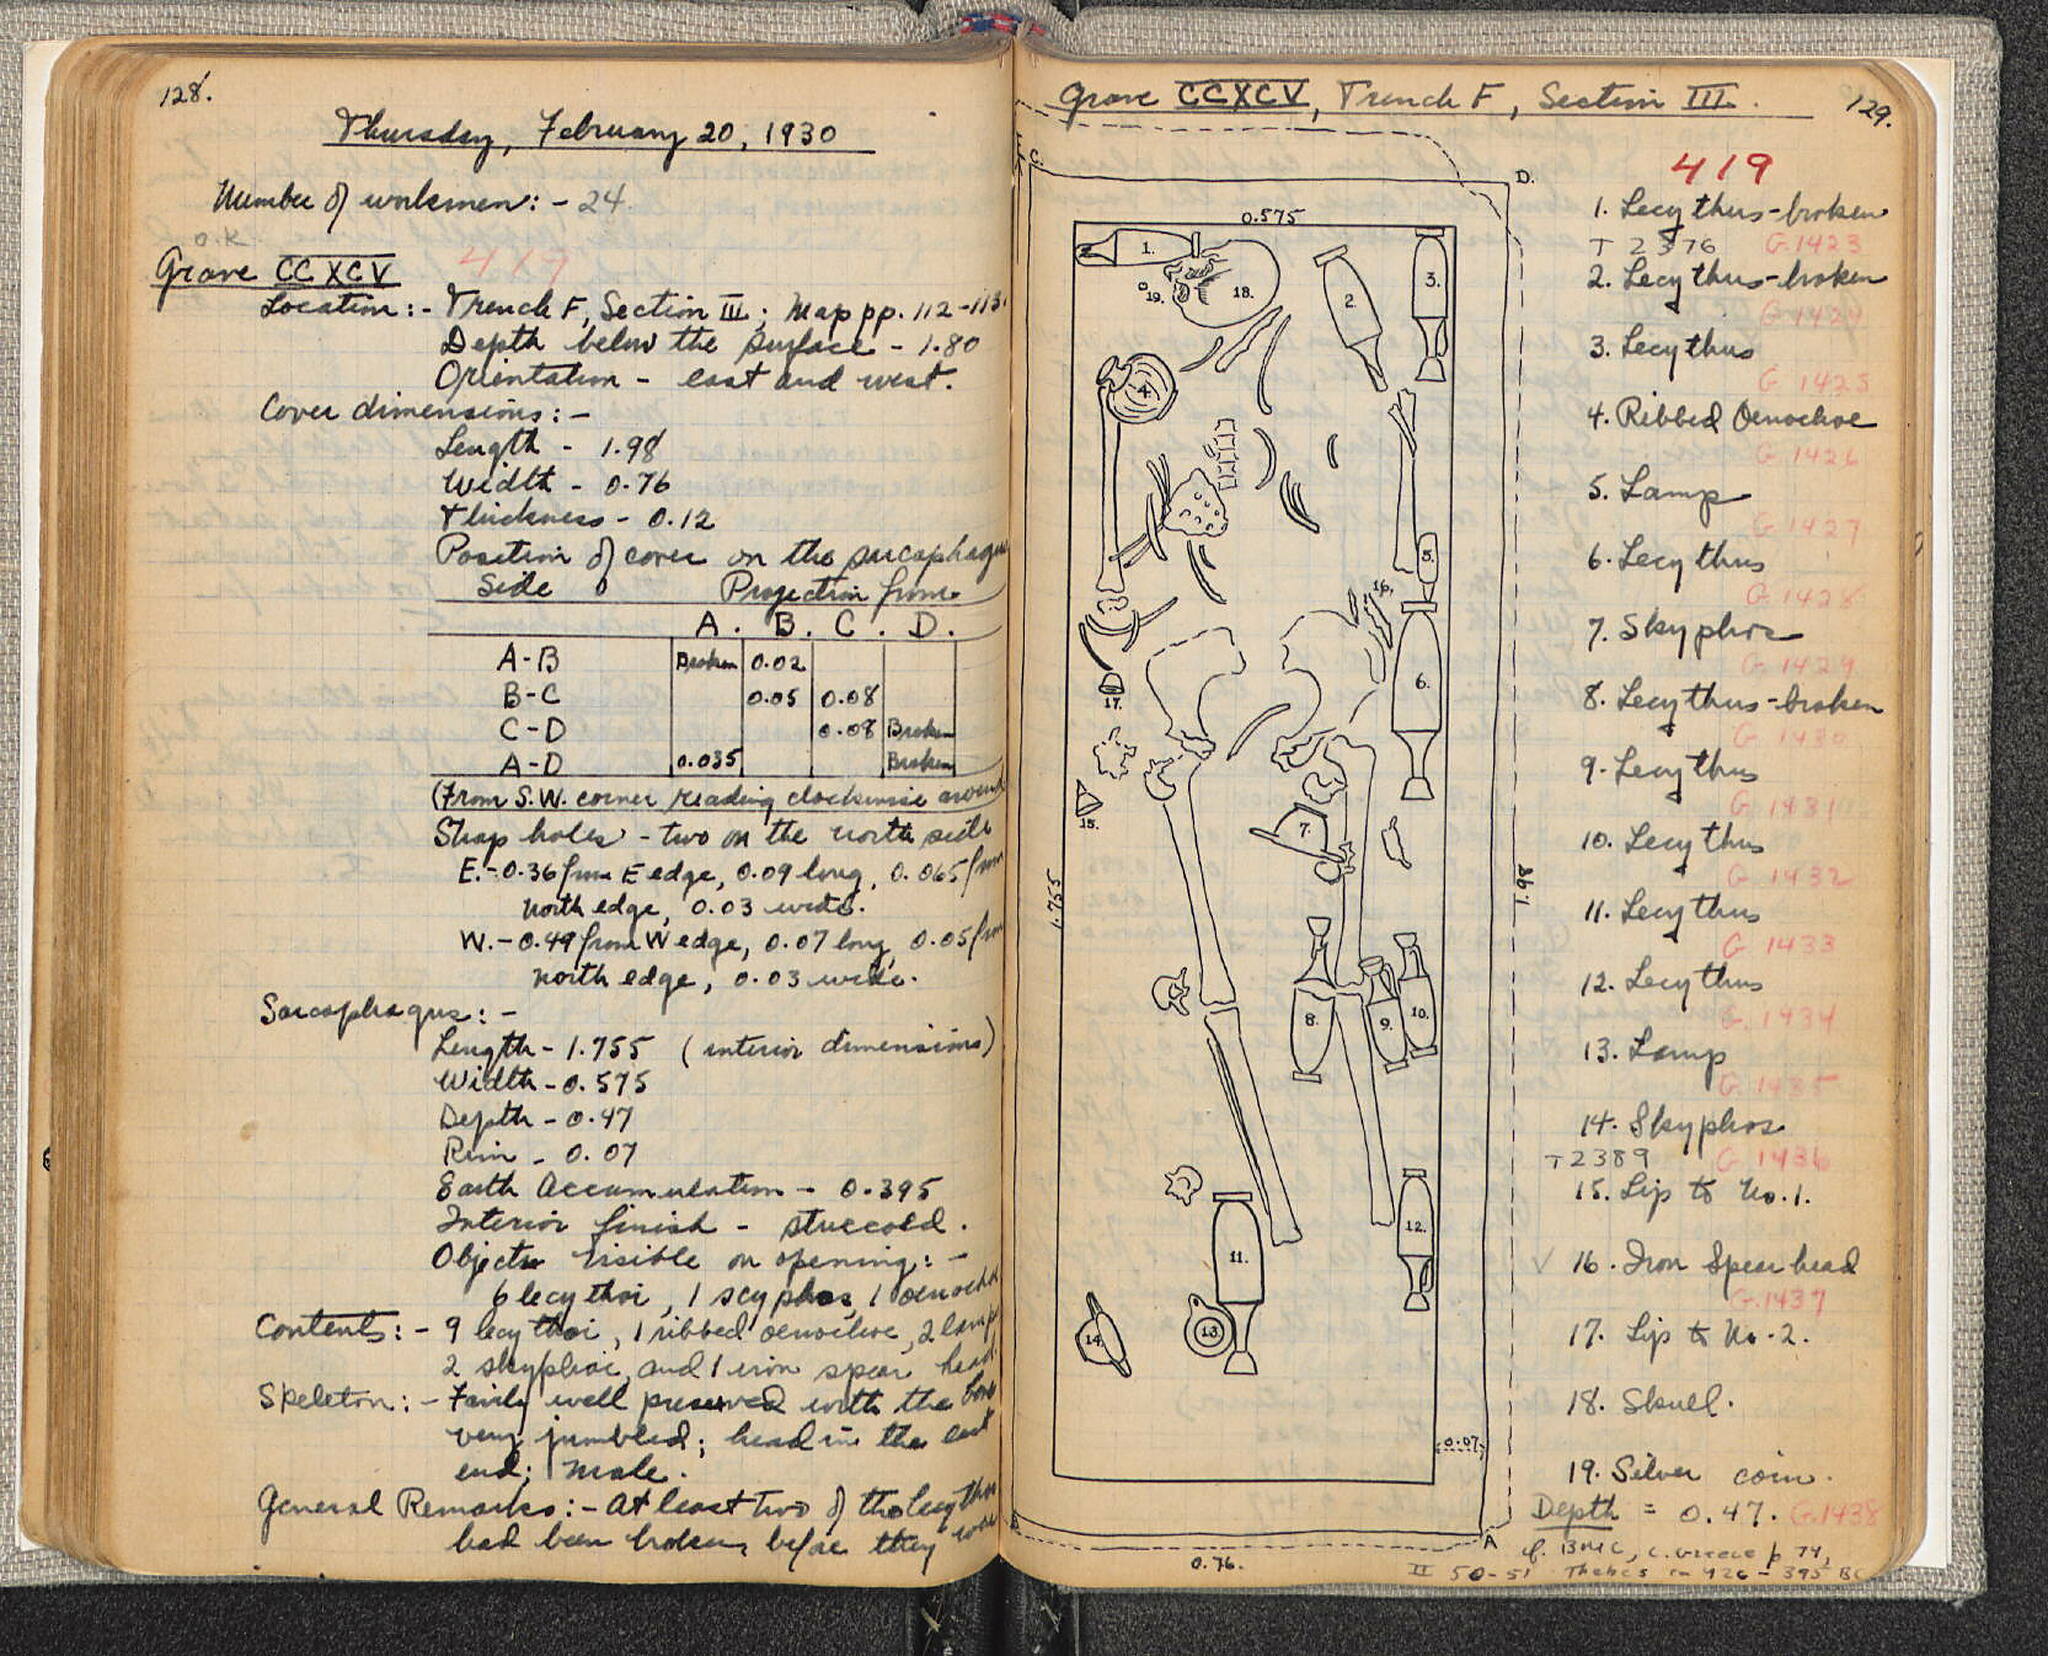 128.
Thursday, February 20, 1930
Number of workmen: - 24
O.K.
Grave CCXCV 419
Location: - Trench F, Section III; Map pp. 112-113.
Depth below the surface - 1.80
Orientation - east and west.
Cover dimensions: -
Length - 1.98
Width - 0.76
Thickness - 0.12
Position of cover on the sarcophagus
Side Projection from
A. B. C. D.
A-B Broken 0.02
B-C 0.05 0.08
C-D 0.08 Broken
A-D 0.035 Broken
(From S.W. corner reading clockwise around
Strap holes - two on the north side
E. - 0.36 from E edge, 0.09 long, 0.065 from
north edge, 0.03 wide.
W. - 0.49 from W edge, 0.07 long, 0.05 from
north edge, 0.03 wide.
Sarcophagus: -
Length - 1.755 (interior dimensions)
Width - 0.575
Depth - 0.47
Rim - 0.07
Earth Accumulation - 0.395
Interior finish - stuccoed.
Objects visible on opening: -
6 lecythoi, 1 scyphos, 1 oenochoe
Contents: - 9 lecythoi, 1 ribbed oenochoe, 2 lamps
2 skyphoi, and 1 iron spear head.
Skeleton: - Fairly well preserved with the bones
very jumbled; head in the east
end; male.
General Remarks: - At least two of the lecythoi
had been broken before they were
Grave CCXCV, Trench F, Section III.
129.
C.
D.
0.575
1.
2.
3.
18.
19.
4.
5.
16.
6.
17.
15.
7.
1.755
1.98
8.
9.
10.
11.
12.
13.
14.
0.07
B
A
0.76.
419
1. Lecythus - broken
T 2376 G.1423
2. Lecythus - broken
G 1424
3. Lecythus
G 1425
4. Ribbed Oenochoe
G 1426
5. Lamp
G 1427
6. Lecythus
G. 1428
7. Skyphos
G. 1429
8. Lecythus - broken
G 1430
9. Lecythus
G 1431
10. Lecythus
G 1432
11. Lecythus
G 1433
12. Lecythus
G. 1434
13. Lamp
G. 1435
14. Skyphos
T 2389 G 1436
15. Lip to No. 1.
16. Iron Spear head
G.1437
17. Lip to No. 2.
18. Skull.
19. Silver coin.
Depth = 0.47. G.1438
cf. BMC, C. Greece p 74,
II 50-51 Thebes 426 - 395 BC